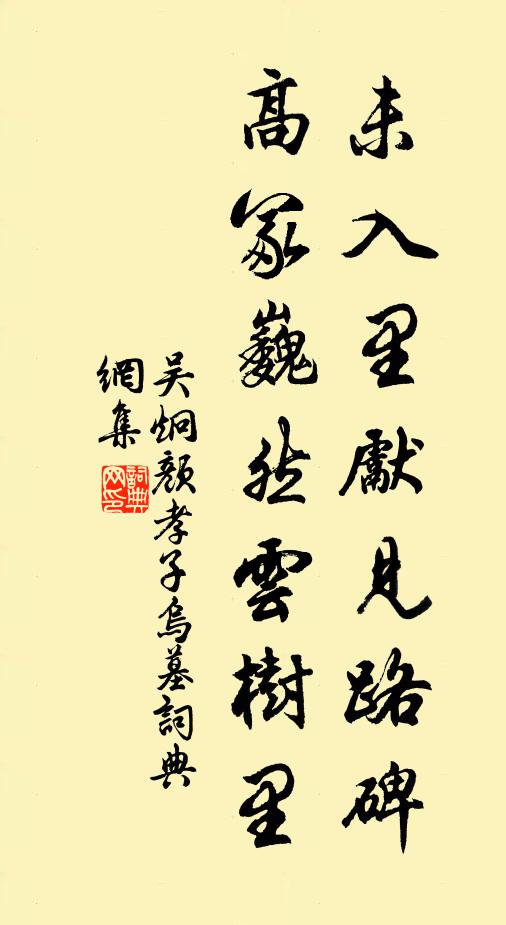 未入里獻見路碑
高冢巍然雲樹里
吳炯顏孝子烏墓詞典
網集
詞典
网印